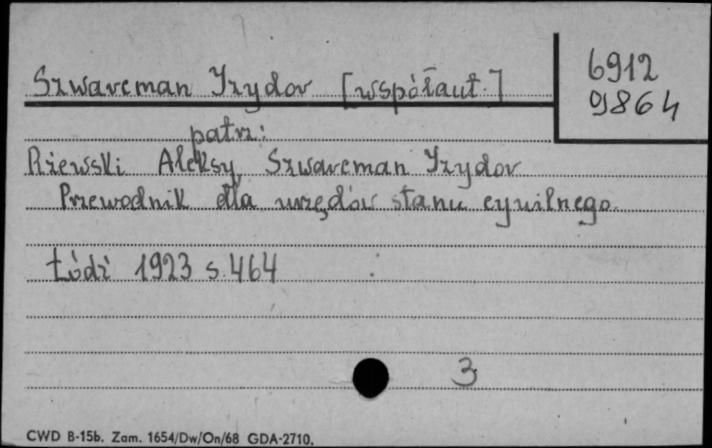 Szwarcman Izydor [współaut.]
6912
9864
patrz:
Rżewski Aleksy, Szwarcman Izydor
Przewodnik dla urzędów stanu cywilnego.
Łódź 1923 s. 464
3
CWD B-15b. Zam. 1654/Dw/On/68 GDA-2710.